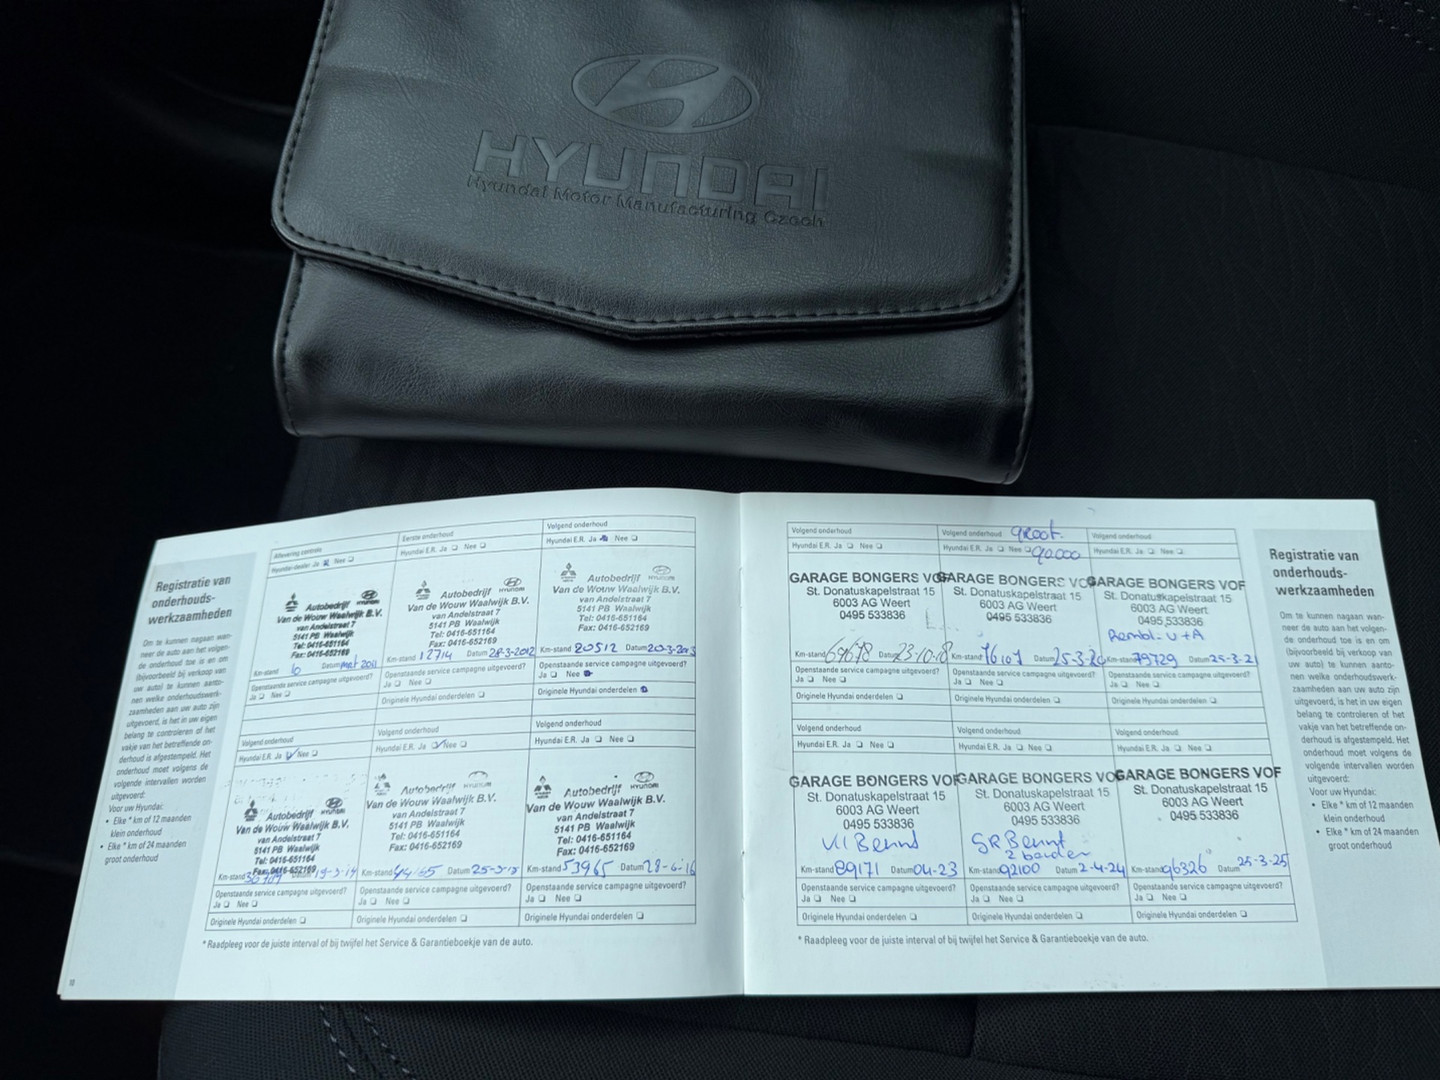 HYUNDAI
Hyundai Motor Manufacturing Czech
Registratie van
onderhouds-
werkzaamheden
Om te kunnen nagaan wan-
neer de auto aan het volgen-
de onderhoud toe is en om
(bijvoorbeeld bij verkoop van
uw auto) te kunnen aanto-
nen welke onderhoudswerk-
zaamheden aan uw auto zijn
uitgevoerd, is het in uw eigen
belang te controleren of het
vakje van het betreffende on-
derhoud is afgestempeld. Het
onderhoud moet volgens de
volgende intervallen worden
uitgevoerd:
Voor uw Hyundai:
• Elke * km of 12 maanden
klein onderhoud
• Elke * km of 24 maanden
groot onderhoud
10
Aflevering controle
Hyundai-dealer Ja Nee
Autobedrijf HYUNDAI
Van de Wouw Waalwijk B.V.
van Andelstraat 7
5141 PB Waalwijk
Tel: 0416-651164
Fax: 0416-652169
Km-stand 6 Datum mrt 2011
Openstaande service campagne uitgevoerd?
Ja Nee
Eerste onderhoud
Hyundai E.R. Ja Nee
Autobedrijf HYUNDAI
Van de Wouw Waalwijk B.V.
van Andelstraat 7
5141 PB Waalwijk
Tel: 0416-651164
Fax: 0416-652169
Km-stand 12714 Datum 28-3-2012
Openstaande service campagne uitgevoerd?
Ja Nee
Originele Hyundai onderdelen
Volgend onderhoud
Hyundai E.R. Ja Nee
Autobedrijf HYUNDAI
Van de Wouw Waalwijk B.V.
van Andelstraat 7
5141 PB Waalwijk
Tel: 0416-651164
Fax: 0416-652169
Km-stand 20512 Datum 20-3-2013
Openstaande service campagne uitgevoerd?
Ja Nee
Originele Hyundai onderdelen
Volgend onderhoud
Hyundai E.R. Ja Nee
Autobedrijf HYUNDAI
Van de Wouw Waalwijk B.V.
van Andelstraat 7
5141 PB Waalwijk
Tel: 0416-651164
Fax: 0416-652169
Km-stand
Openstaande service campagne uitgevoerd?
Ja Nee
Originele Hyundai onderdelen
Hyundai E.R. Ja Nee
Autobedrijf HYUNDAI
Van de Wouw Waalwijk B.V.
van Andelstraat 7
5141 PB Waalwijk
Tel: 0416-651164
Fax: 0416-652169
Km-stand Datum
Openstaande service campagne uitgevoerd?
Ja Nee
Originele Hyundai onderdelen
Volgend onderhoud
Hyundai E.R. Ja Nee
Autobedrijf HYUNDAI
Van de Wouw Waalwijk B.V.
van Andelstraat 7
5141 PB Waalwijk
Tel: 0416-651164
Fax: 0416-652169
Km-stand 53965 Datum 28-6-16
Openstaande service campagne uitgevoerd?
Ja Nee
Originele Hyundai onderdelen
* Raadpleeg voor de juiste interval of bij twijfel het Service & Garantieboekje van de auto.
Volgend onderhoud
Hyundai E.R. Ja Nee
GARAGE BONGERS VOF
St. Donatuskapelstraat 15
6003 AG Weert
0495 533836
Km-stand 69678 Datum 23-10-18
Openstaande service campagne uitgevoerd?
Ja Nee
Originele Hyundai onderdelen
Volgend onderhoud groot
Hyundai E.R. Ja Nee 90.000
GARAGE BONGERS VO
St. Donatuskapelstraat 15
6003 AG Weert
0495 533836
Km-stand 76107 Datum 25-3-20
Openstaande service campagne uitgevoerd?
Ja Nee
Originele Hyundai onderdelen
Volgend onderhoud
Hyundai E.R. Ja Nee
GARAGE BONGERS VOF
St. Donatuskapelstraat 15
6003 AG Weert
0495 533836
Reml. V+A
Km-stand 79729 Datum 25-3-21
Openstaande service campagne uitgevoerd?
Ja Nee
Originele Hyundai onderdelen
Volgend onderhoud
Hyundai E.R. Ja Nee
GARAGE BONGERS VOF
St. Donatuskapelstraat 15
6003 AG Weert
0495 533836
Km-stand 89171 Datum 04-23
Openstaande service campagne uitgevoerd?
Ja Nee
Originele Hyundai onderdelen
Volgend onderhoud
Hyundai E.R. Ja Nee
GARAGE BONGERS VO
St. Donatuskapelstraat 15
6003 AG Weert
0495 533836
2 banden
Km-stand 92100 Datum 2-4-24
Openstaande service campagne uitgevoerd?
Ja Nee
Originele Hyundai onderdelen
Volgend onderhoud
Hyundai E.R. Ja Nee
GARAGE BONGERS VOF
St. Donatuskapelstraat 15
6003 AG Weert
0495 533836
Km-stand 96326 Datum 25-3-25
Openstaande service campagne uitgevoerd?
Ja Nee
Originele Hyundai onderdelen
* Raadpleeg voor de juiste interval of bij twijfel het Service & Garantieboekje van de auto.
Registratie van
onderhouds-
werkzaamheden
Om te kunnen nagaan wan-
neer de auto aan het volgen-
de onderhoud toe is en om
(bijvoorbeeld bij verkoop van
uw auto) te kunnen aanto-
nen welke onderhoudswerk-
zaamheden aan uw auto zijn
uitgevoerd, is het in uw eigen
belang te controleren of het
vakje van het betreffende on-
derhoud is afgestempeld. Het
onderhoud moet volgens de
volgende intervallen worden
uitgevoerd:
Voor uw Hyundai:
• Elke * km of 12 maanden
klein onderhoud
• Elke * km of 24 maanden
groot onderhoud